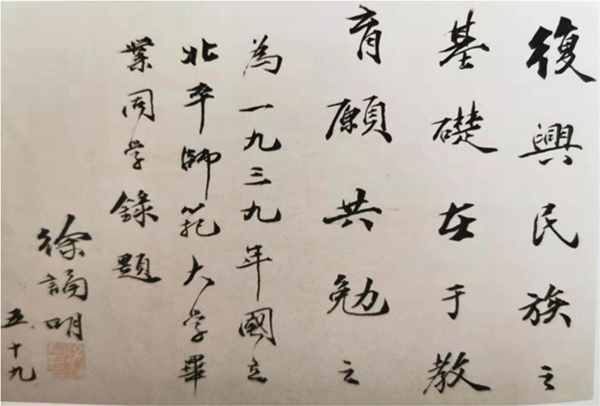 復興民族之
基礎在于教
育願共勉之
為一九三九年國立
北平師范大学畢
業同学錄題
徐誦明
五.十九